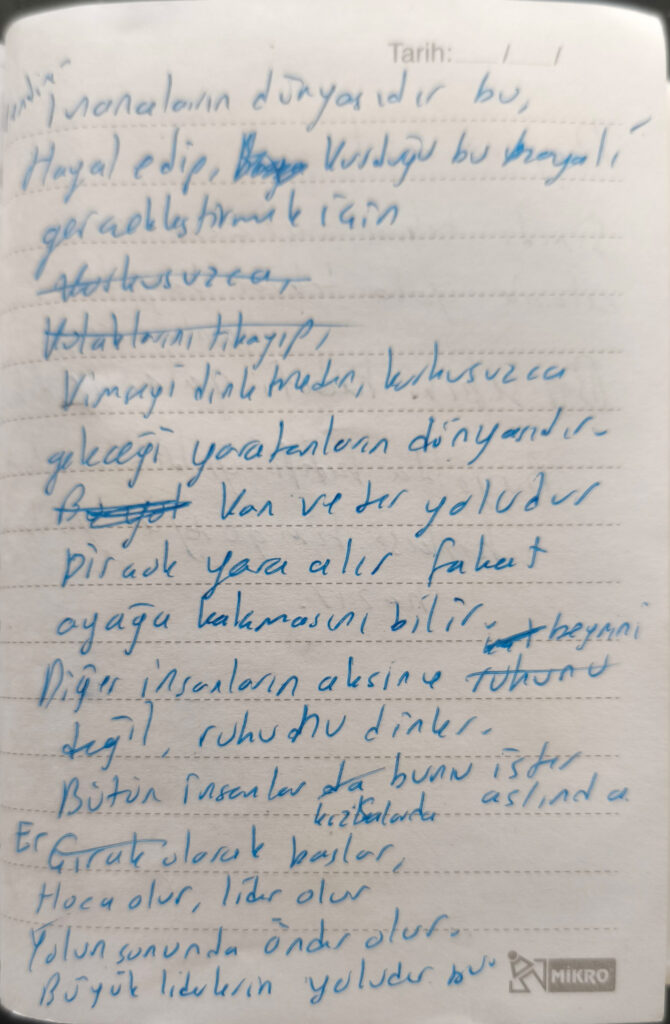 Tarih: / /
İnanaların dünyasıdır bu,
Hayal edip, kurduğu bu hayali
gerçekleştirmek için
Korkusuzca,
Kulaklarını tıkayıp,
Kimseyi dinletmeden, korkusuzca
geleceği yaratanların dünyasıdır.
Kan ve ter yoludur
Birçok yara alır fakat
ayağa kalkmasını bilir.
beynini
Diğer insanların aksine ruhunu
değil, ruhunu dinler.
Bütün insanlar da bunu ister
aslında
Er Çırak olarak başlar,
Hoca olur, lider olur
Yolun sonunda önder olur.
Büyük liderlerin yoludur bu.
MİKRO